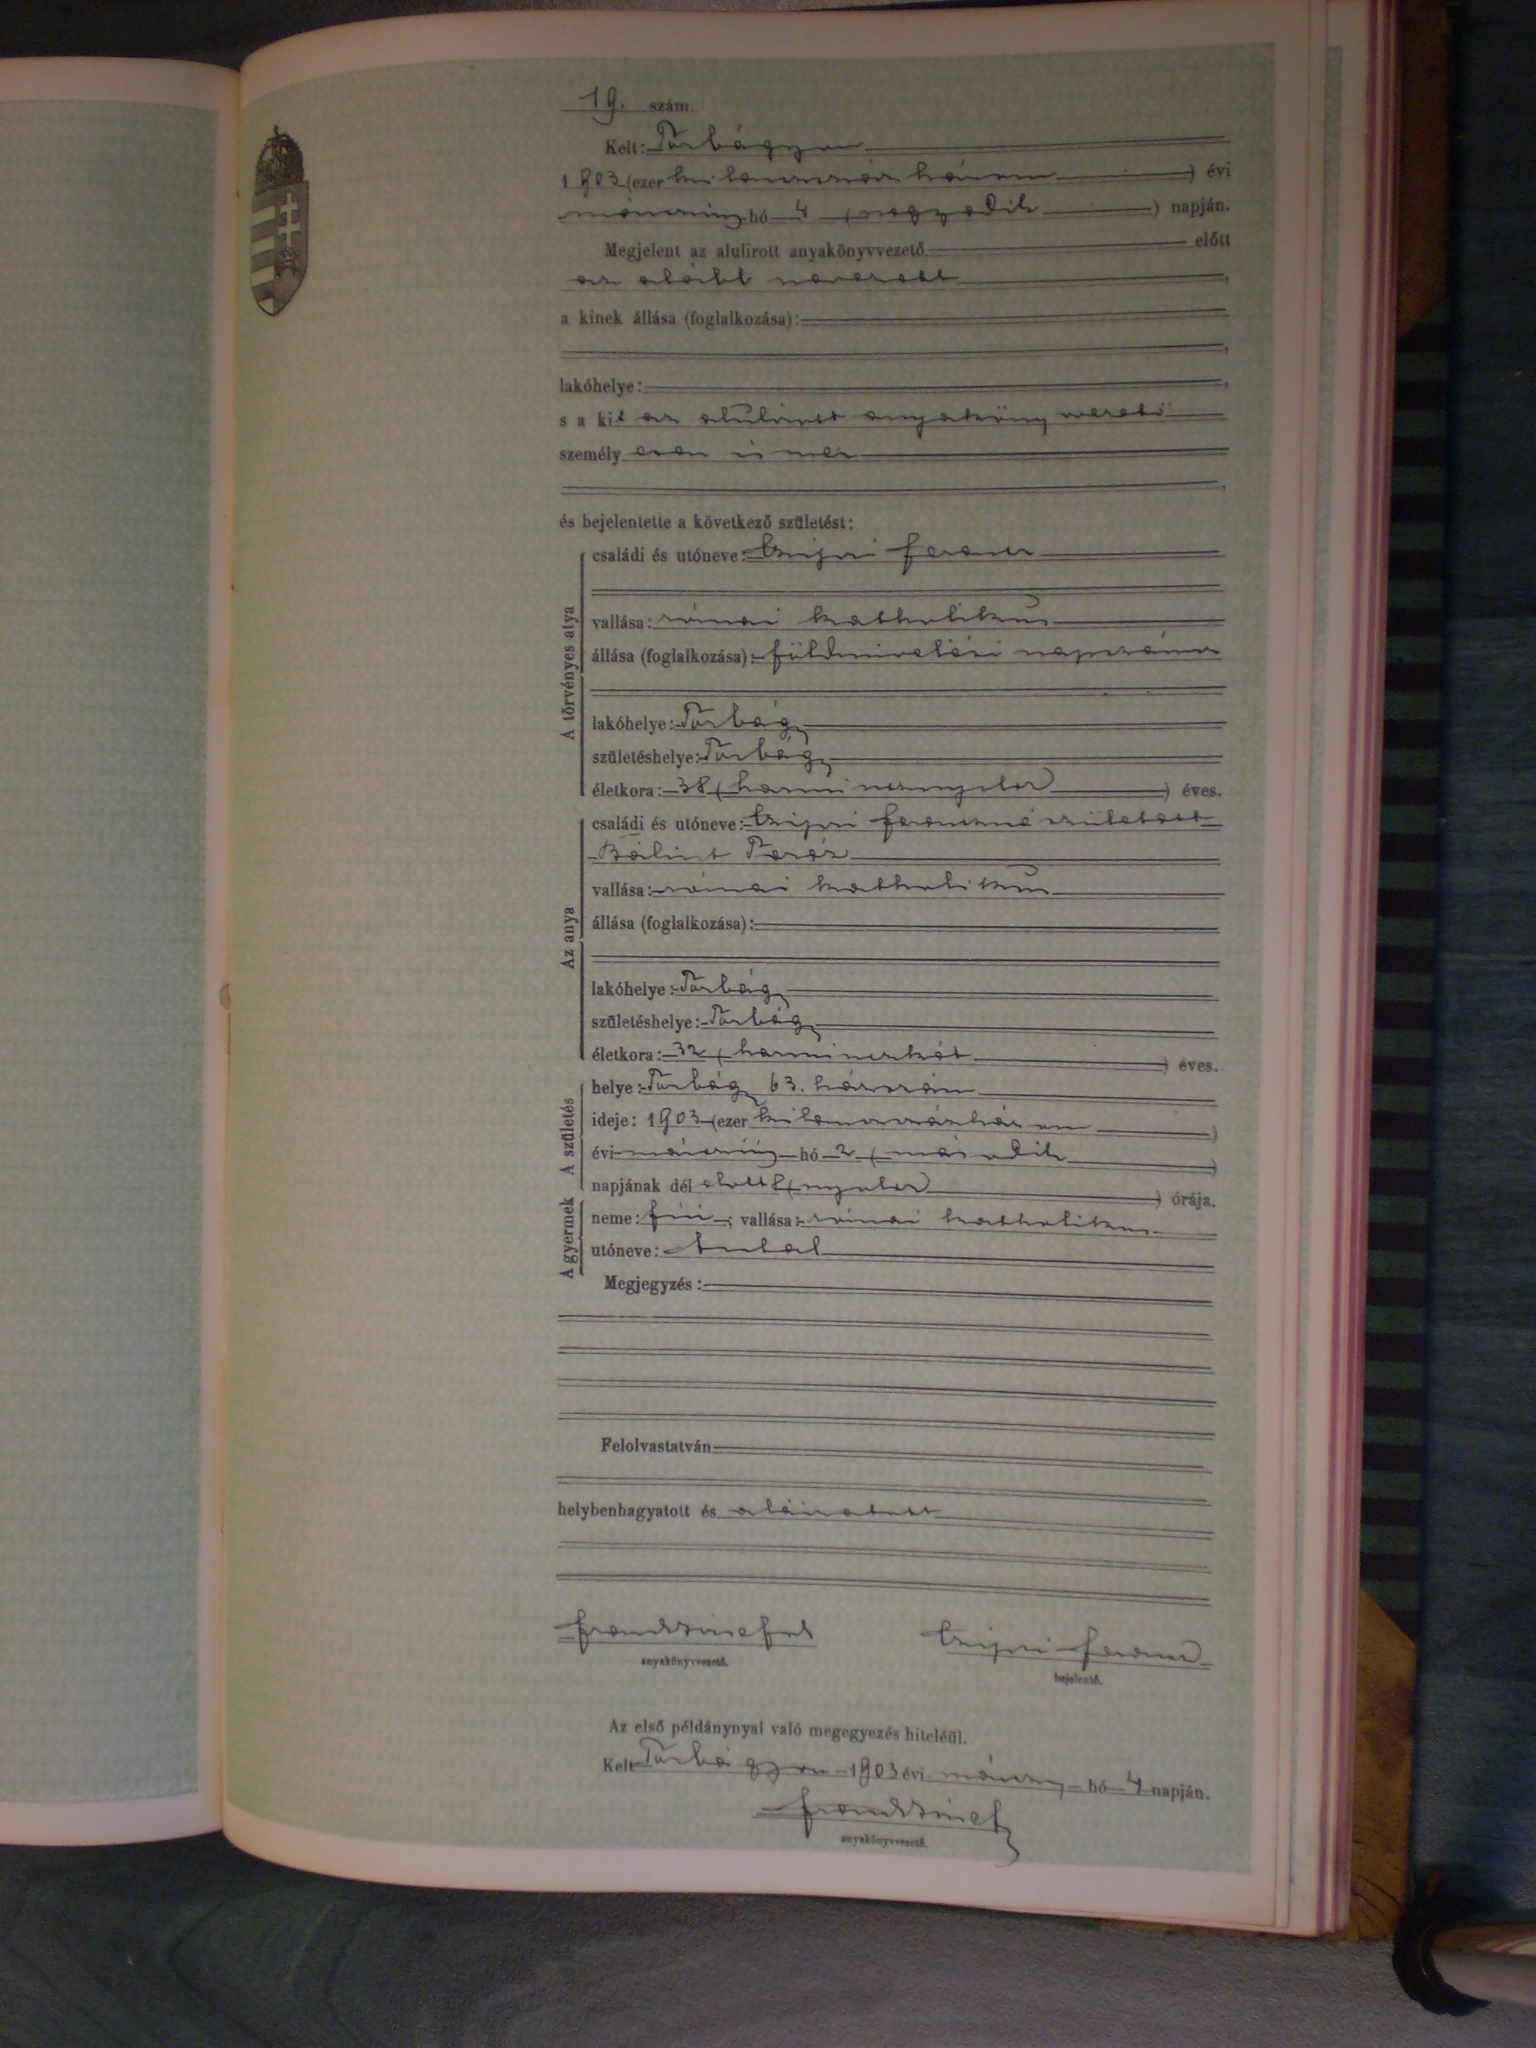 19. szám.
Kelt: Torbágyon
1903 (ezer kilenczszáz három) évi
márczius hó 4 (negyedik) napján.
Megjelent az alulirott anyakönyvvezető előtt
az alább nevezett,
a kinek állása (foglalkozása):
lakóhelye:
s a kit az alulirott anyakönyvvezető
személyesen ismer
és bejelentette a következő születést:
A törvényes atya
családi és utóneve: Czipri Ferencz
vallása: római katholikus
állása (foglalkozása): földmivelési napszámos
lakóhelye: Torbágy
születéshelye: Torbágy
életkora: 38 (harmincznyolcz) éves.
Az anya
családi és utóneve: Czipri Ferenczné született
Bálint Teréz
vallása: római katholikus
állása (foglalkozása):
lakóhelye: Torbágy
születéshelye: Torbágy
életkora: 32 (harminczkét) éves.
A születés
helye: Torbágy 63. házszám
ideje: 1903 (ezer kilenczszázhárom)
évi márczius hó 2 (második)
napjának dél előtt 8 (nyolcz) órája.
A gyermek
neme: fiú; vallása: római katholikus
utóneve: Antal
Megjegyzés:
Felolvastatván
helybenhagyatott és aláiratott
anyakönyvvezető.
Czipri Ferencz
bejelentő.
Az első példánynyal való megegyezés hiteléül.
Kelt Torbágyon 1903 évi márczius hó 4 napján.
anyakönyvvezető.